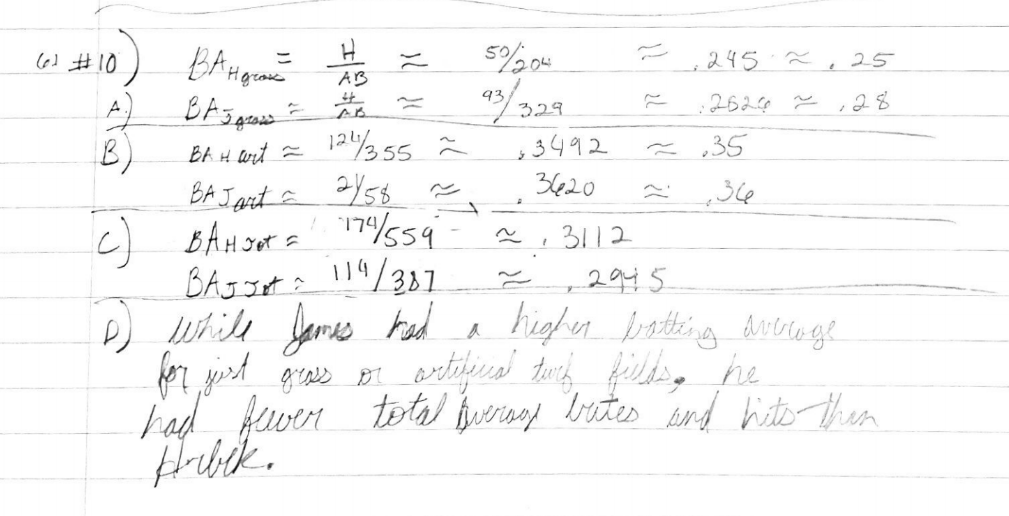 (6) #10) BA H grass = H/AB ≈ 50/204 ≈ .245 ≈ .25
A) BA J grass = H/AB ≈ 93/329 ≈ .2826 ≈ .28
B) BA H art = 124/355 ≈ .3492 ≈ .35
BA J art = 21/58 ≈ .3620 ≈ .36
C) BA H Tot = 174/559 ≈ .3112
BA J Tot = 114/387 ≈ .2945
D) While James had a higher batting average
for just grass or artificial turf fields, he
had fewer total average and hits than